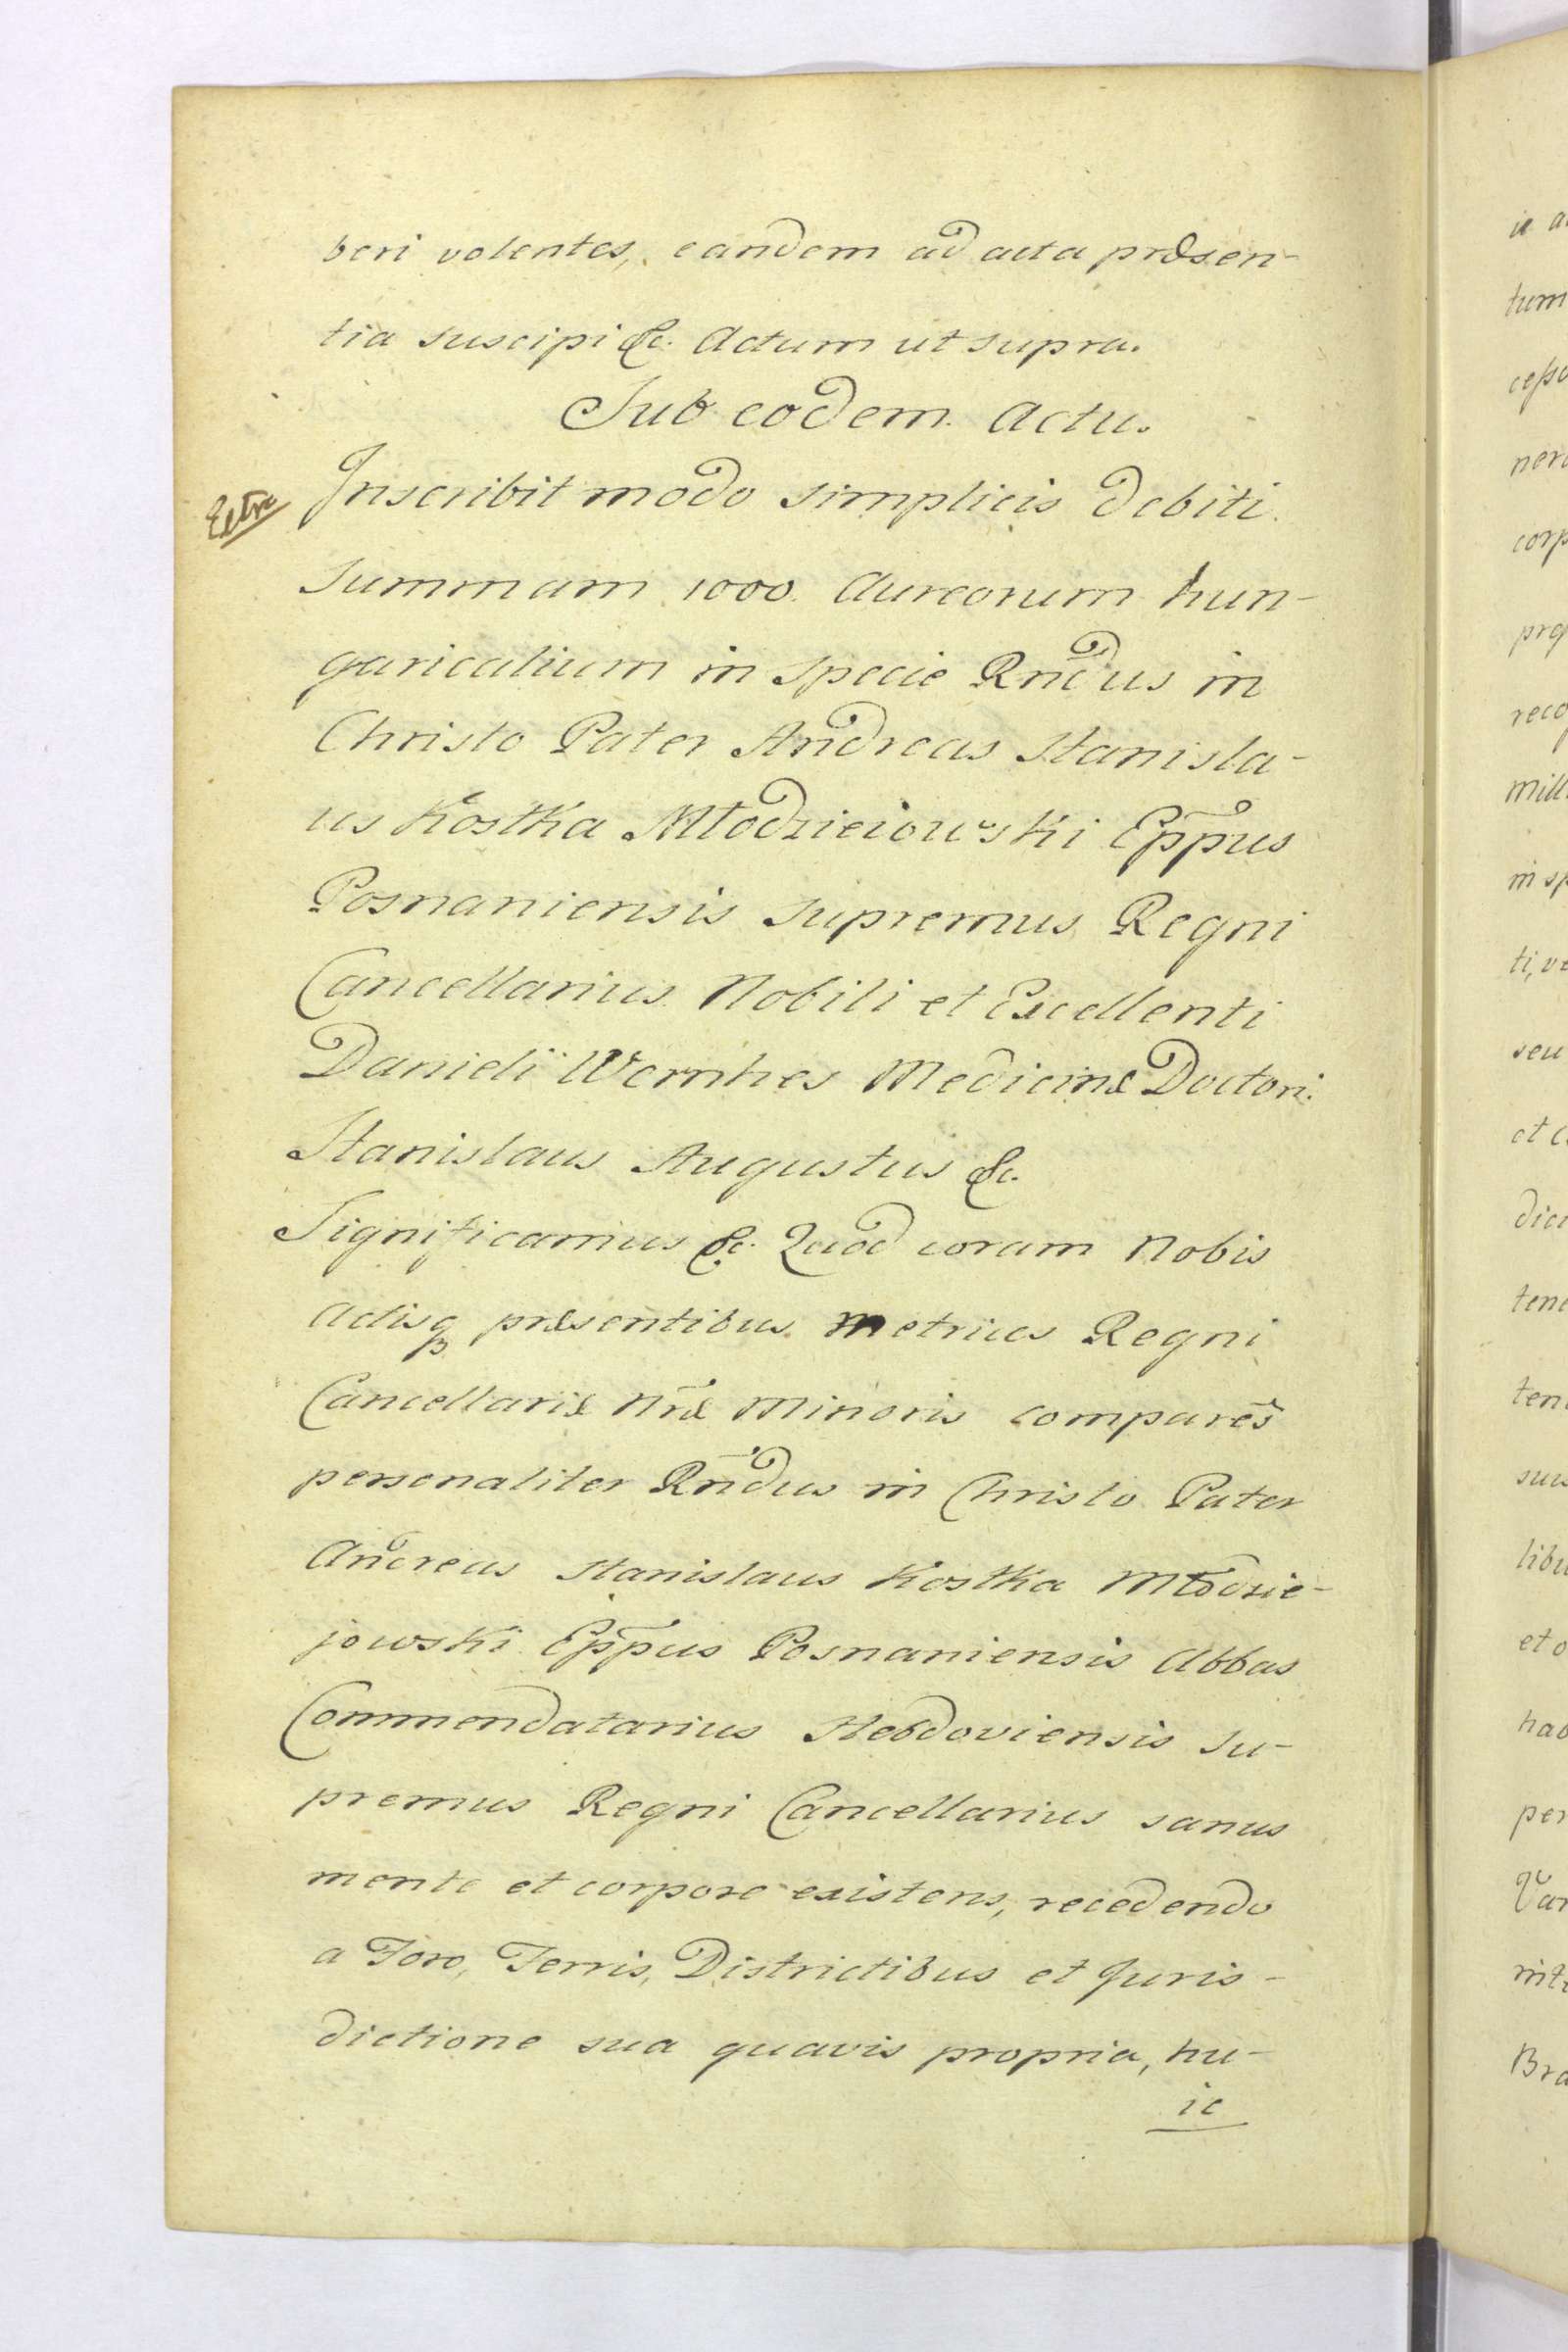 beri volentes, eandem ad acta præsen-
tia suscipi &c. Actum ut supra.
Sub eodem Actu.
Extra
Inscribit modo simplicis debiti
summam 1000. Aureorum hun-
garicalium in specie Rñdus in
Christo Pater Andreas Stanisla-
us Kostka Młodzieiowski Epp̃us
Posnaniensis Supremus Regni
Cancellarius Nobili et Excellenti
Danieli Wernhes Medicinæ Doctori.
Stanislaus Augustus &c.
Significamus &c. Quod coram Nobis
Actisq3 præsentibus Metrices Regni
Cancellariæ Nr̃æ Minoris comparẽs
personaliter Rñdus in Christo Pater
Andreas Stanislaus Kostka Młodzie-
jowski Epp̃us Posnaniensis Abbas
Commendatarius Hebdoviensis Su-
premus Regni Cancellarius sanus
mente et corpore existens, recedendo
a Foro, Terris, Districtibus et Juris-
dictione sua quavis propria, hu-
ic